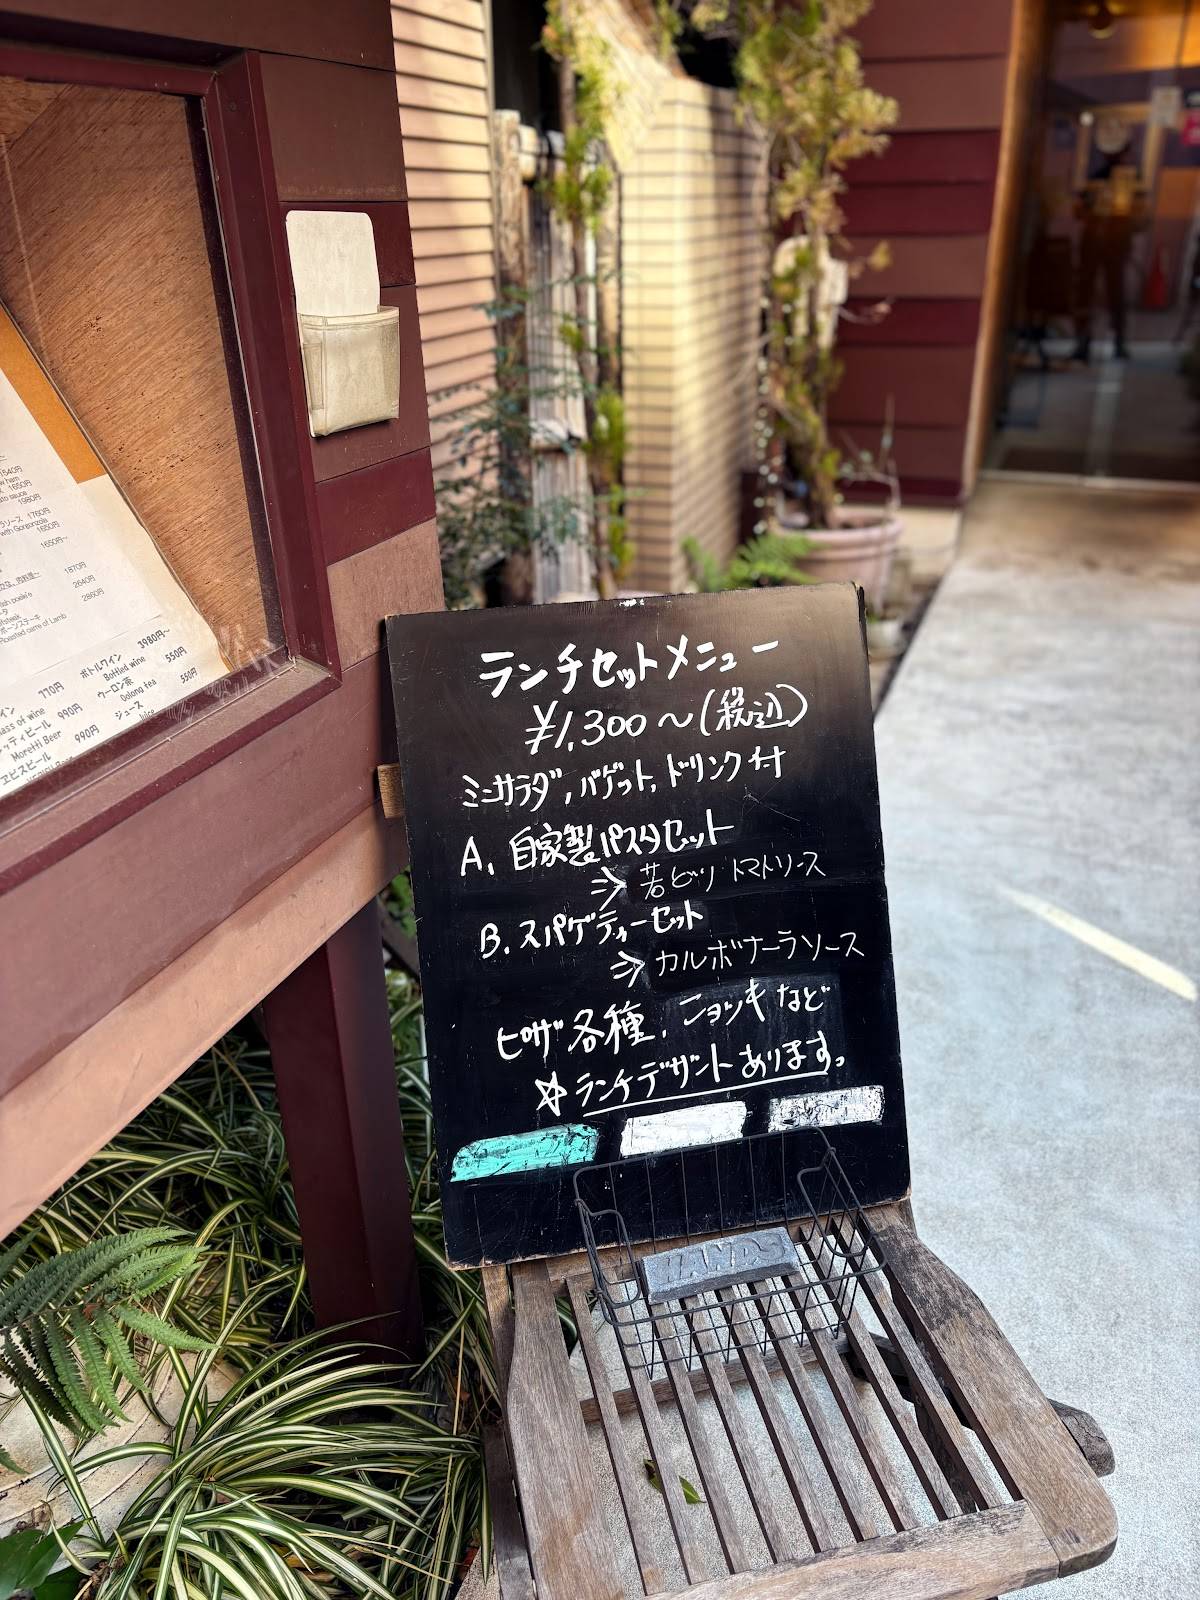 ランチセットメニュー
¥1,300～(税込)
ミニサラダ,バゲット,ドリンク付
A. 自家製パスタセット
⇒ 若どり トマトソース
B. スパゲティーセット
⇒ カルボナーラソース
ピザ各種, ニョッキなど
☆ランチデザートあります。
HANDS
1540円
1650円
1980円
1760円
with Gorgonzola
1650円
1650円～
1870円
2640円
2860円
Roasted carre of Lamb
770円 ボトルワイン 3980円～
Bottled wine
990円 ウーロン茶 550円
Moretti Beer Oolong tea
エビスビール 990円 ジュース 550円
juice